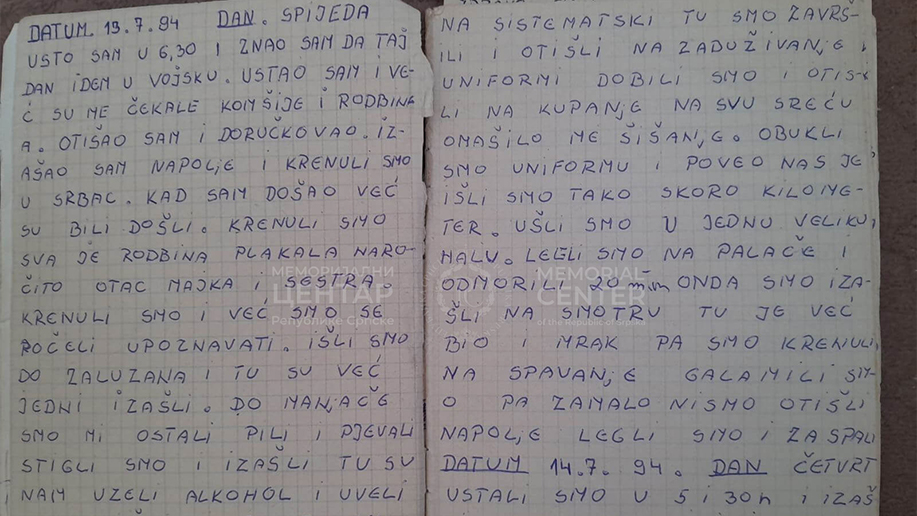 DATUM. 13.7.94 DAN. SPIJEDA
USTO SAM U 6,30 I ZNAO SAM DA TAJ
DAN IDEM U VOJSKU. USTAO SAM I VE-
Ć SU ME ČEKALE KOMŠIJE I RODBINA
A. OTIŠAO SAM I DORUČKOVAO. IZ-
AŠAO SAM NAPOLJE I KRENULI SMO
U SRBAC. KAD SAM DOŠAO VEĆ
SU BILI DOŠLI. KRENULI SMO
SVA JE RODBINA PLAKALA NARO-
ČITO OTAC MAJKA I SESTRA.
KRENULI SMO I VEĆ SMO SE
ROČELI UPOZNAVATI. IŠLI SMO
DO ZALUZANA I TU SU VEĆ
JEDNI IZAŠLI. DO MANJAČE
SMO MI OSTALI PILI I PJEVALI
STIGLI SMO I IZAŠLI TU SU
NAM UZELI ALKOHOL I UVELI
NA SISTEMATSKI TU SMO ZAVRŠ-
ILI I OTIŠLI NA ZADUŽIVANJE
UNIFORMI DOBILI SMO I OTIŠ-
LI NA KUPANJE NA SVU SREĆU
OMAŠILO ME ŠIŠANJE. OBUKLI
SMO UNIFORMU I POVEO NAS JE
IŠLI SMO TAKO SKORO KILOME-
TER. UŠLI SMO U JEDNU VELIKU
HALU. LEGLI SMO NA PALAČE I
ODMORILI 20 min ONDA SMO IZA-
ŠLI NA SMOTRU TU JE VEĆ
BIO I MRAK PA SMO KRENULI
NA SPAVANJE GALAMILI SM-
O PA ZAMALO NISMO OTIŠLI
NAPOLJE LEGLI SMO I ZASPALI
DATUM 14.7. 94. DAN ČETVRT
USTALI SMO U 5 i 30h I IZAŠ
МЕМОРИЈАЛНИ
ЦЕНТАР
Републике Српске
MEMORIAL
CENTER
of the Republic of Srpska